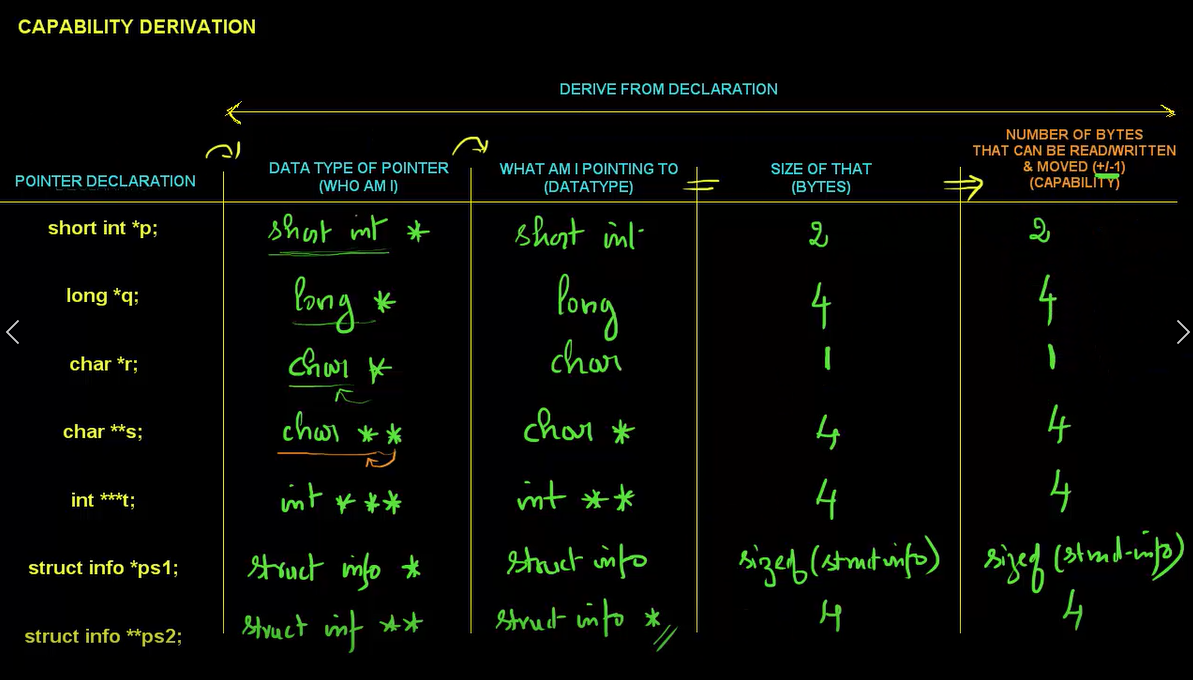 CAPABILITY DERIVATION
DERIVE FROM DECLARATION
POINTER DECLARATION
DATA TYPE OF POINTER
(WHO AM I)
WHAT AM I POINTING TO
(DATATYPE)
=
SIZE OF THAT
(BYTES)
NUMBER OF BYTES
THAT CAN BE READ/WRITTEN
& MOVED (+/-1)
(CAPABILITY)
short int *p; short int * short int 2 2
long *q; long * long 4 4
char *r; char * char 1 1
char **s; char ** char * 4 4
int ***t; int *** int ** 4 4
struct info *ps1; struct info * struct info sizeof(struct info) sizeof(struct info)
struct info **ps2; struct inf ** struct info * 4 4